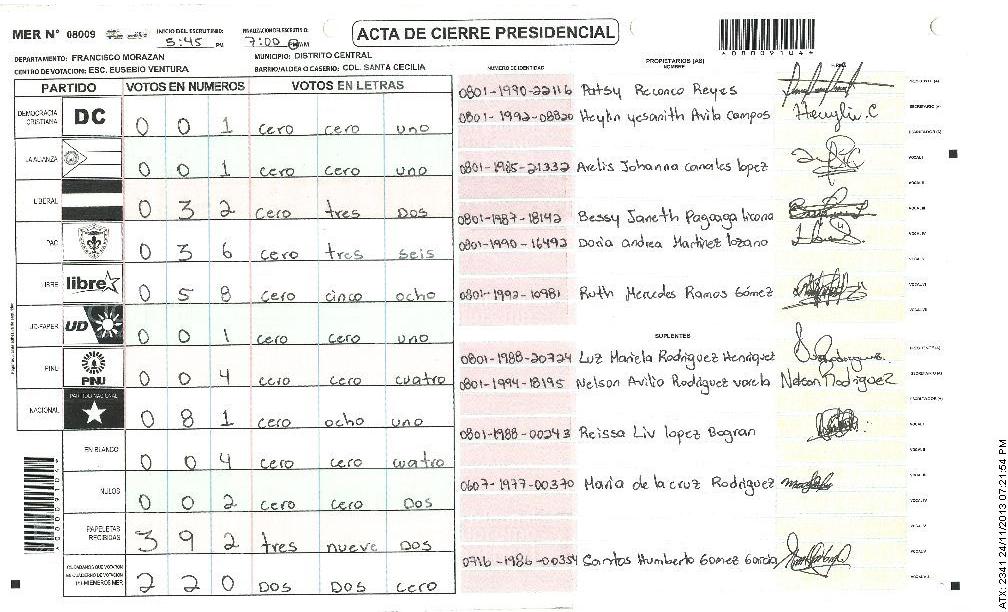 MER N° 08009
INICIO DEL ESCRUTINIO: 5:45 PM
FINALIZACION DEL ESCRUTINIO: 7:00 PM AM
ACTA DE CIERRE PRESIDENCIAL
DEPARTAMENTO: FRANCISCO MORAZAN
MUNICIPIO: DISTRITO CENTRAL
CENTRO DE VOTACION: ESC. EUSEBIO VENTURA
BARRIO/ALDEA O CASERIO: COL. SANTA CECILIA
PARTIDO VOTOS EN NUMEROS VOTOS EN LETRAS
DEMOCRACIA CRISTIANA DC 0 0 1 cero cero uno
LA ALIANZA 0 0 1 cero cero uno
LIBERAL 0 3 2 cero tres Dos
PAC 0 3 6 cero tres seis
LIBRE libre 0 5 8 cero cinco ocho
UD-FAPER UD 0 0 1 cero cero uno
PINU PINU 0 0 4 cero cero cuatro
NACIONAL PARTIDO NACIONAL 0 8 1 cero ocho uno
EN BLANCO 0 0 4 cero cero cuatro
NULOS 0 0 2 cero cero Dos
PAPELETAS RECIBIDAS 3 9 2 tres nueve Dos
CIUDADANOS QUE VOTARON 2 2 0 Dos Dos cero
NUMERO DE IDENTIDAD
PROPIETARIOS (AS)
NOMBRE
0801-1990-22116 Patsy Reconco Reyes
0801-1992-08820 Heylin yesanith Avila campos Heuylin.C
0801-1985-21332 Arelis Johanna canales lopez
0801-1987-18142 Bessy Janeth Pagoaga licona
0801-1990-16492 Doria andrea Martinez lozano
0801-1992-10981 Ruth Mercedes Ramos Gómez
SUPLENTES
0801-1988-20724 Luz Mariela Rodriguez Henriquez
0801-1994-18195 Nelson Avilio Rodriguez varela Nelson Rodriguez
0801-1988-00243 Reissa Liv lopez Bogran
0607-1977-00370 Maria de la cruz Rodriguez
0716-1986-00354 Santos Humberto Gomez Garcia
ATX: 2341 24/11/2013 07:21:54 PM